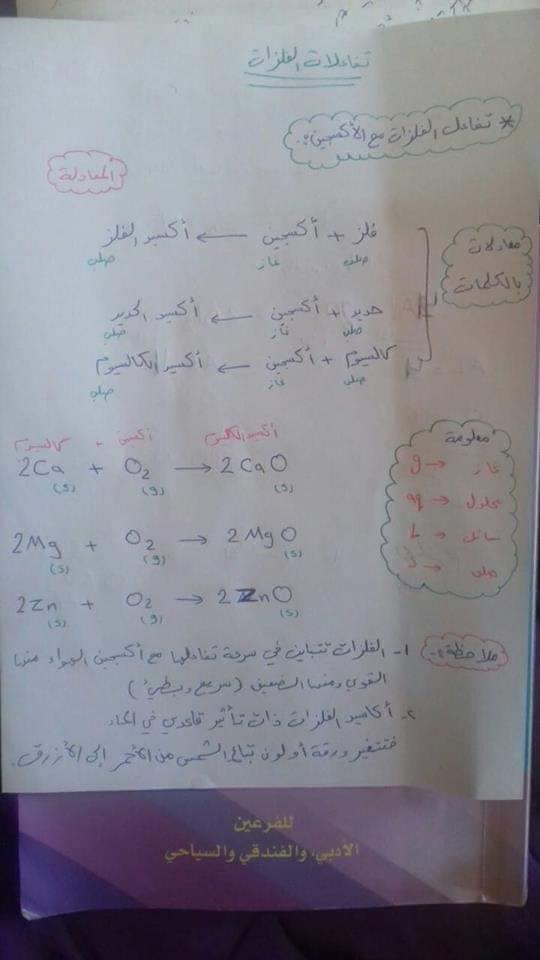 تفاعلات الفلزات
* تفاعل الفلزات مع الأكسجين :-
المعادلة
معادلات بالكلمات
فلز + أكسجين ← أكسيد الفلز
صلب غاز صلب
حديد + أكسجين ← أكسيد الحديد
صلب غاز صلب
كالسيوم + أكسجين ← أكسيد الكالسيوم
صلب غاز صلب
معلومة
غاز → g
محلول → aq
سائل → L
صلب → s
كالسيوم + أكسجين أكسيد الكالسيوم
2Ca + O2 → 2CaO
(s) (g) (s)
2Mg + O2 → 2MgO
(s) (g) (s)
2Zn + O2 → 2ZnO
(s) (g) (s)
ملاحظة :-
1- الفلزات تتباين في سرعة تفاعلها مع أكسجين الهواء منها
القوي ومنها الضعيف (سريع وبطيء)
2- أكاسيد الفلزات ذات تأثير قاعدي في الماء
فتتغير ورقة أو لون تباع الشمس من الأحمر إلى الأزرق.
للفرعين
الأدبي، والفندقي والسياحي